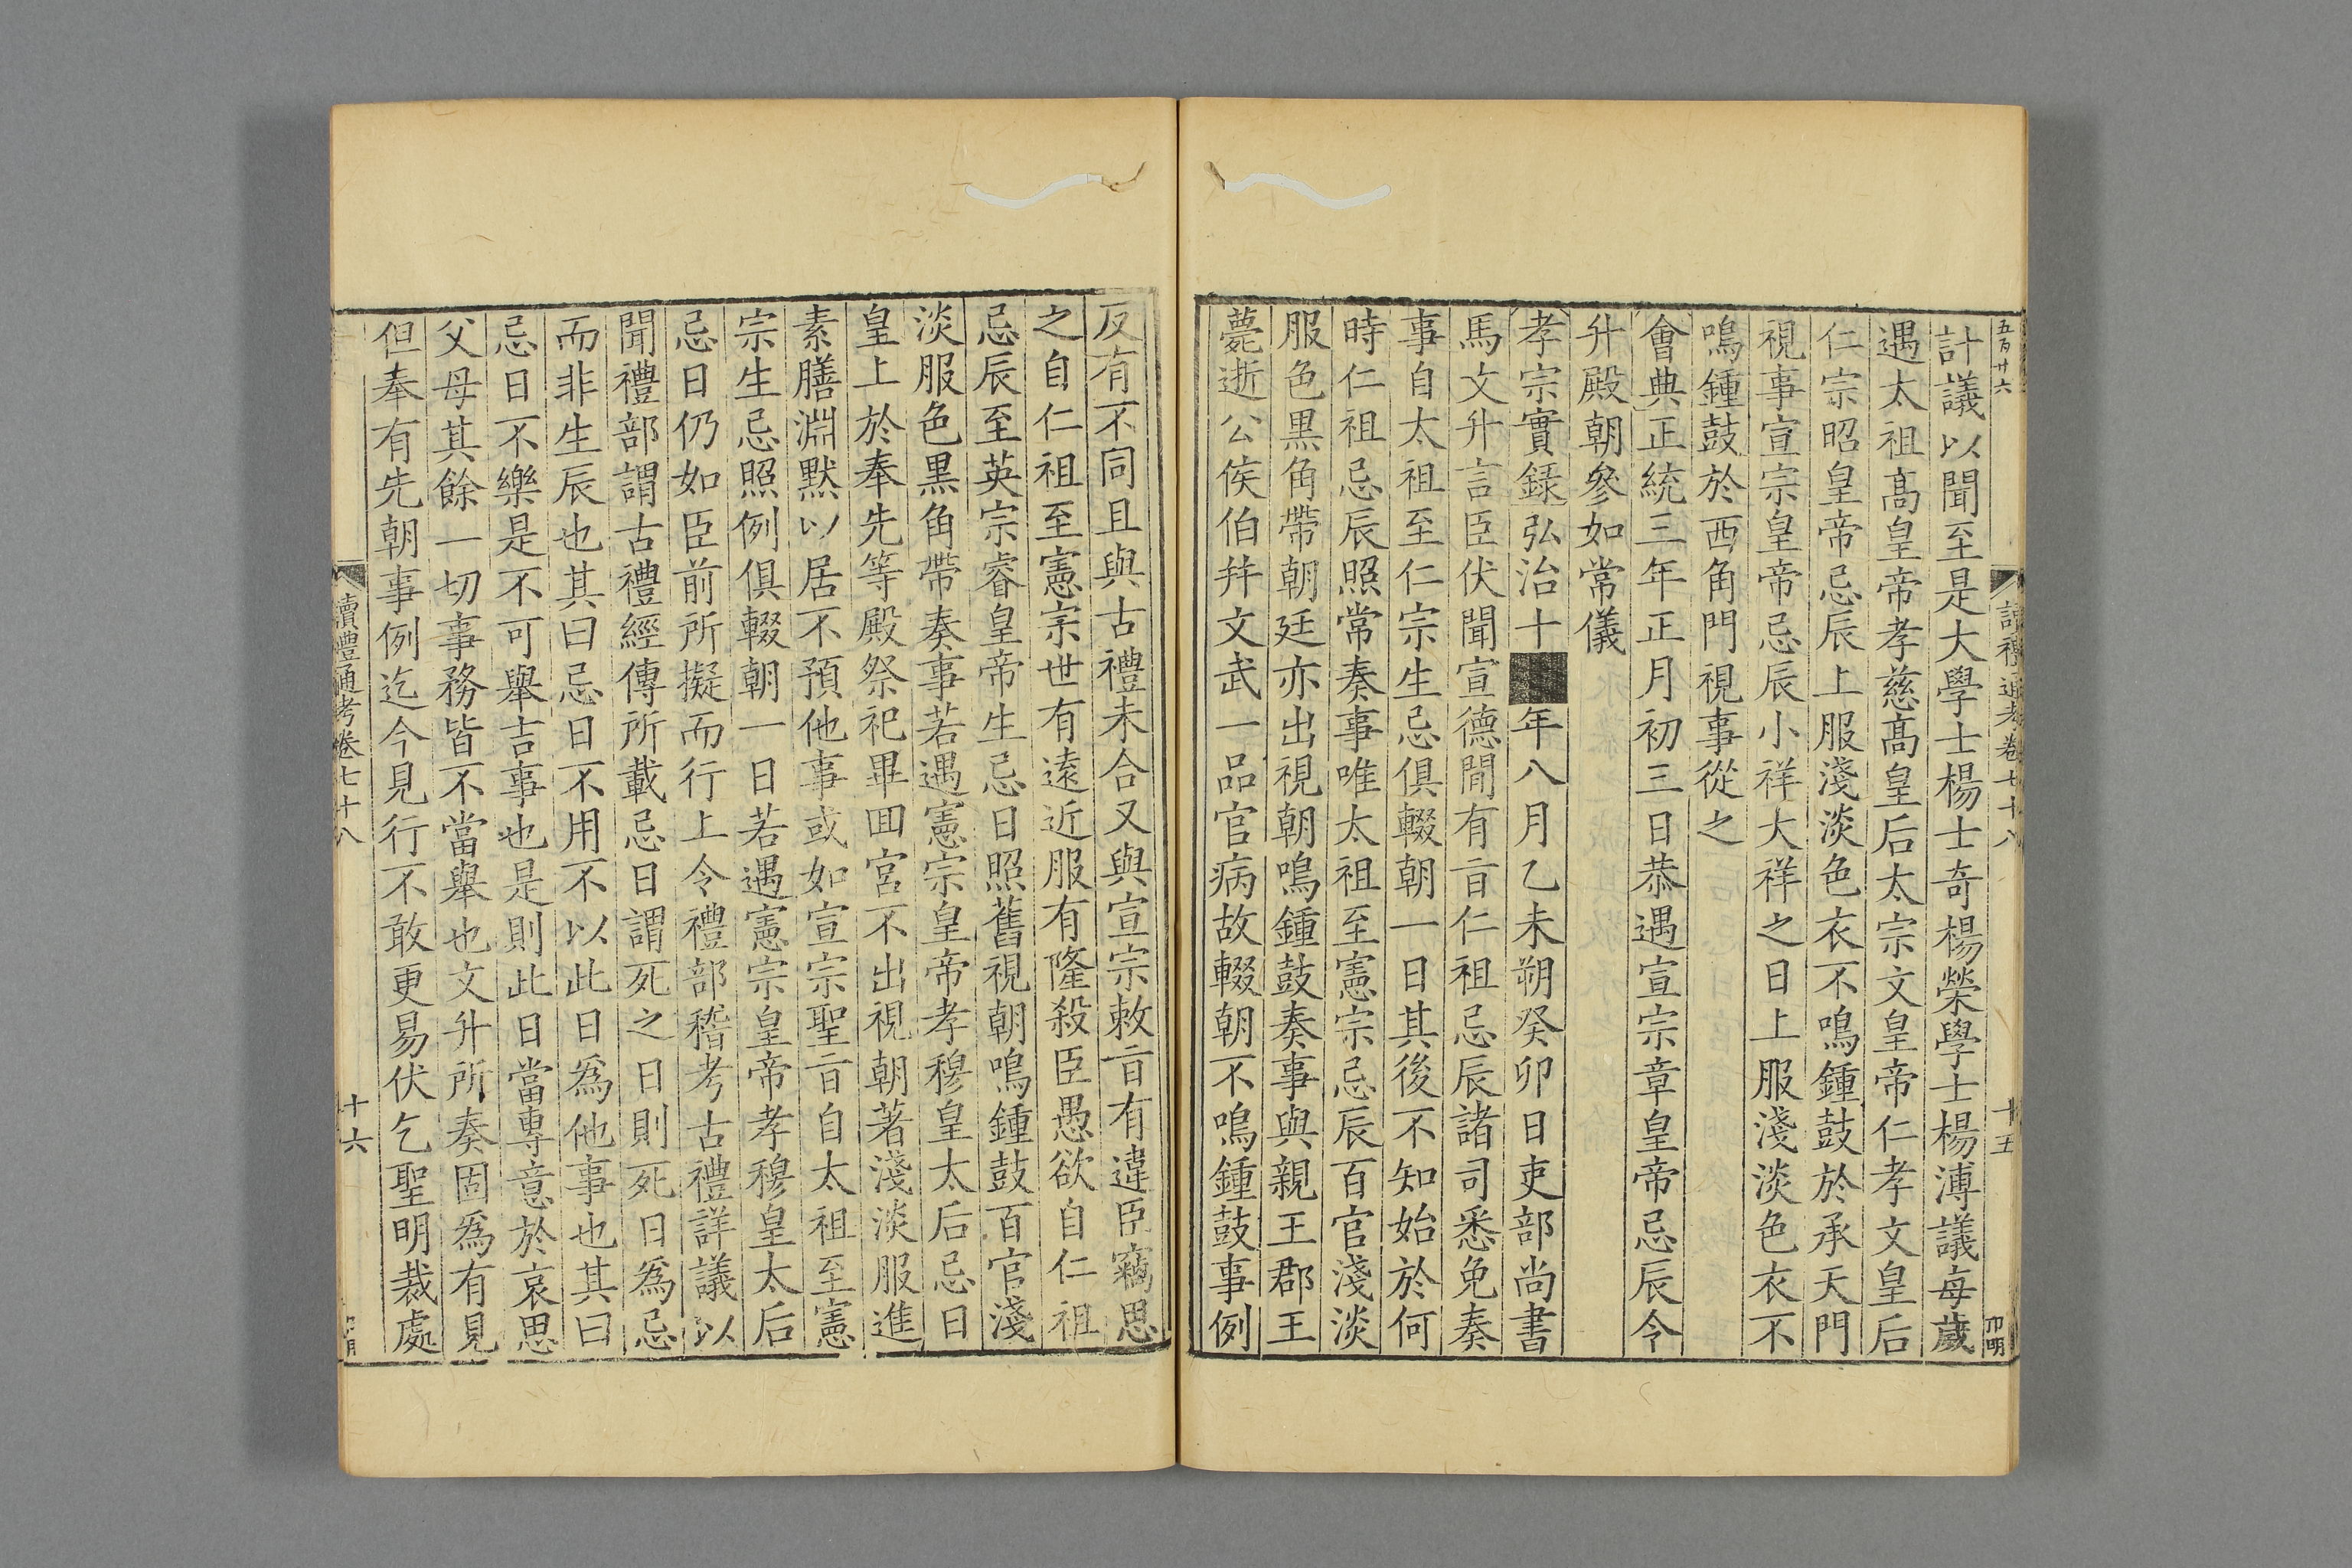 五百廾六
讀禮通考卷七十八
十五
計議以聞至是大學士楊士奇楊榮學士楊溥議每歲
遇太祖髙皇帝孝慈髙皇后太宗文皇帝仁孝文皇后
仁宗昭皇帝忌辰上服淺淡色衣不鳴鍾鼓於承天門
視事宣宗皇帝忌辰小祥大祥之日上服淺淡色衣不
鳴鍾鼓於西角門視事從之
會典正統三年正月初三日恭遇宣宗章皇帝忌辰令
升殿朝參如常儀
孝宗實錄弘治十■年八月乙未朔癸卯日吏部尚書
馬文升言臣伏聞宣德間有㫖仁祖忌辰諸司悉免奏
事自太祖至仁宗生忌俱輟朝一日其後不知始於何
時仁祖忌辰照常奏事唯太祖至憲宗忌辰百官淺淡
服色黒角帶朝廷亦出視朝鳴鍾鼓奏事與親王郡王
薨逝公侯伯并文武一品官病故輟朝不鳴鍾鼓事例
反有不同且與古禮未合又與宣宗敕㫖有違臣竊思
之自仁祖至憲宗世有遠近服有隆殺臣愚欲自仁祖
忌辰至英宗睿皇帝生忌日照舊視朝鳴鍾鼓百官淺
淡服色黒角帶奏事若遇憲宗皇帝孝穆皇太后忌日
皇上於奉先等殿祭祀畢囬宮不出視朝著淺淡服進
素膳淵默以居不預他事或如宣宗聖㫖自太祖至憲
宗生忌照例俱輟朝一日若遇憲宗皇帝孝穆皇太后
忌日仍如臣前所擬而行上令禮部稽考古禮詳議以
聞禮部謂古禮經傳所載忌日謂死之日則死日為忌
而非生辰也其曰忌日不用不以此日為他事也其曰
忌日不樂是不可舉吉事也是則此日當專意於哀思
父母其餘一切事務皆不當舉也文升所奏固為有見
但奉有先朝事例迄今見行不敢更易伏乞聖明裁處
讀禮通考卷七十八
十六